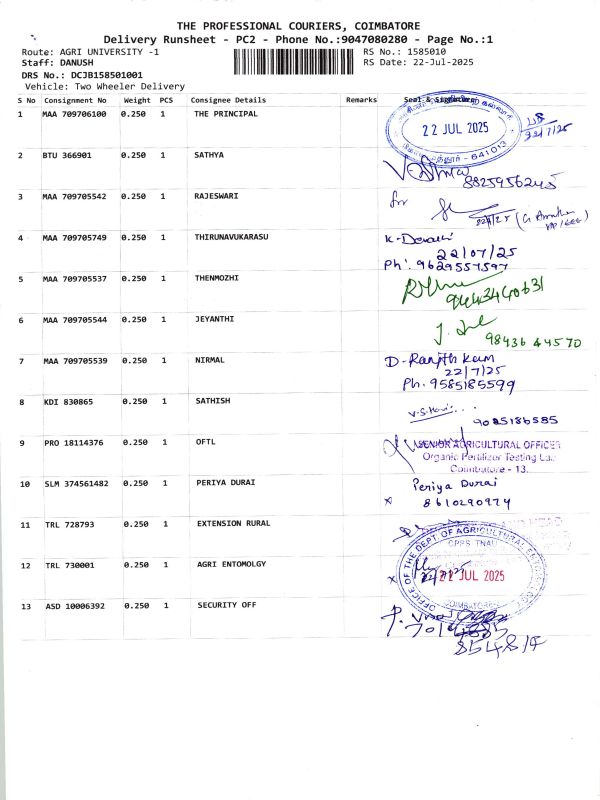 THE PROFESSIONAL COURIERS, COIMBATORE
Delivery Runsheet - PC2 - Phone No.:9047080280 - Page No.:1
Route: AGRI UNIVERSITY -1
RS No.: 1585010
Staff: DANUSH
RS Date: 22-Jul-2025
DRS No.: DCJB158501001
Vehicle: Two Wheeler Delivery
S No Consignment No Weight PCS Consignee Details Remarks Seal & Signature
1 MAA 709706100 0.250 1 THE PRINCIPAL
22 JUL 2025
22/7/25
641013
2 BTU 366901 0.250 1 SATHYA
8825956245
3 MAA 709705542 0.250 1 RAJESWARI
for
22/7/25
4 MAA 709705749 0.250 1 THIRUNAVUKARASU
K. Devaki
22/07/25
Ph: 9629557597
5 MAA 709705537 0.250 1 THENMOZHI
9443440631
6 MAA 709705544 0.250 1 JEYANTHI
98436 44570
7 MAA 709705539 0.250 1 NIRMAL
D. Ranjith Kum
22/7/25
Ph. 9585185599
8 KDI 830865 0.250 1 SATHISH
9025186585
9 PRO 18114376 0.250 1 OFTL
SENIOR AGRICULTURAL OFFICER
Organic Fertilizer Testing Lab
Coimbatore - 13.
10 SLM 374561482 0.250 1 PERIYA DURAI
Periya Durai
x 8610290974
11 TRL 728793 0.250 1 EXTENSION RURAL
OFFICE OF THE DEPT OF AGRICULTURAL ENTOMOLOGY
CPPS TNAU
12 TRL 730001 0.250 1 AGRI ENTOMOLGY
x
22 JUL 2025
COIMBATORE
13 ASD 10006392 0.250 1 SECURITY OFF